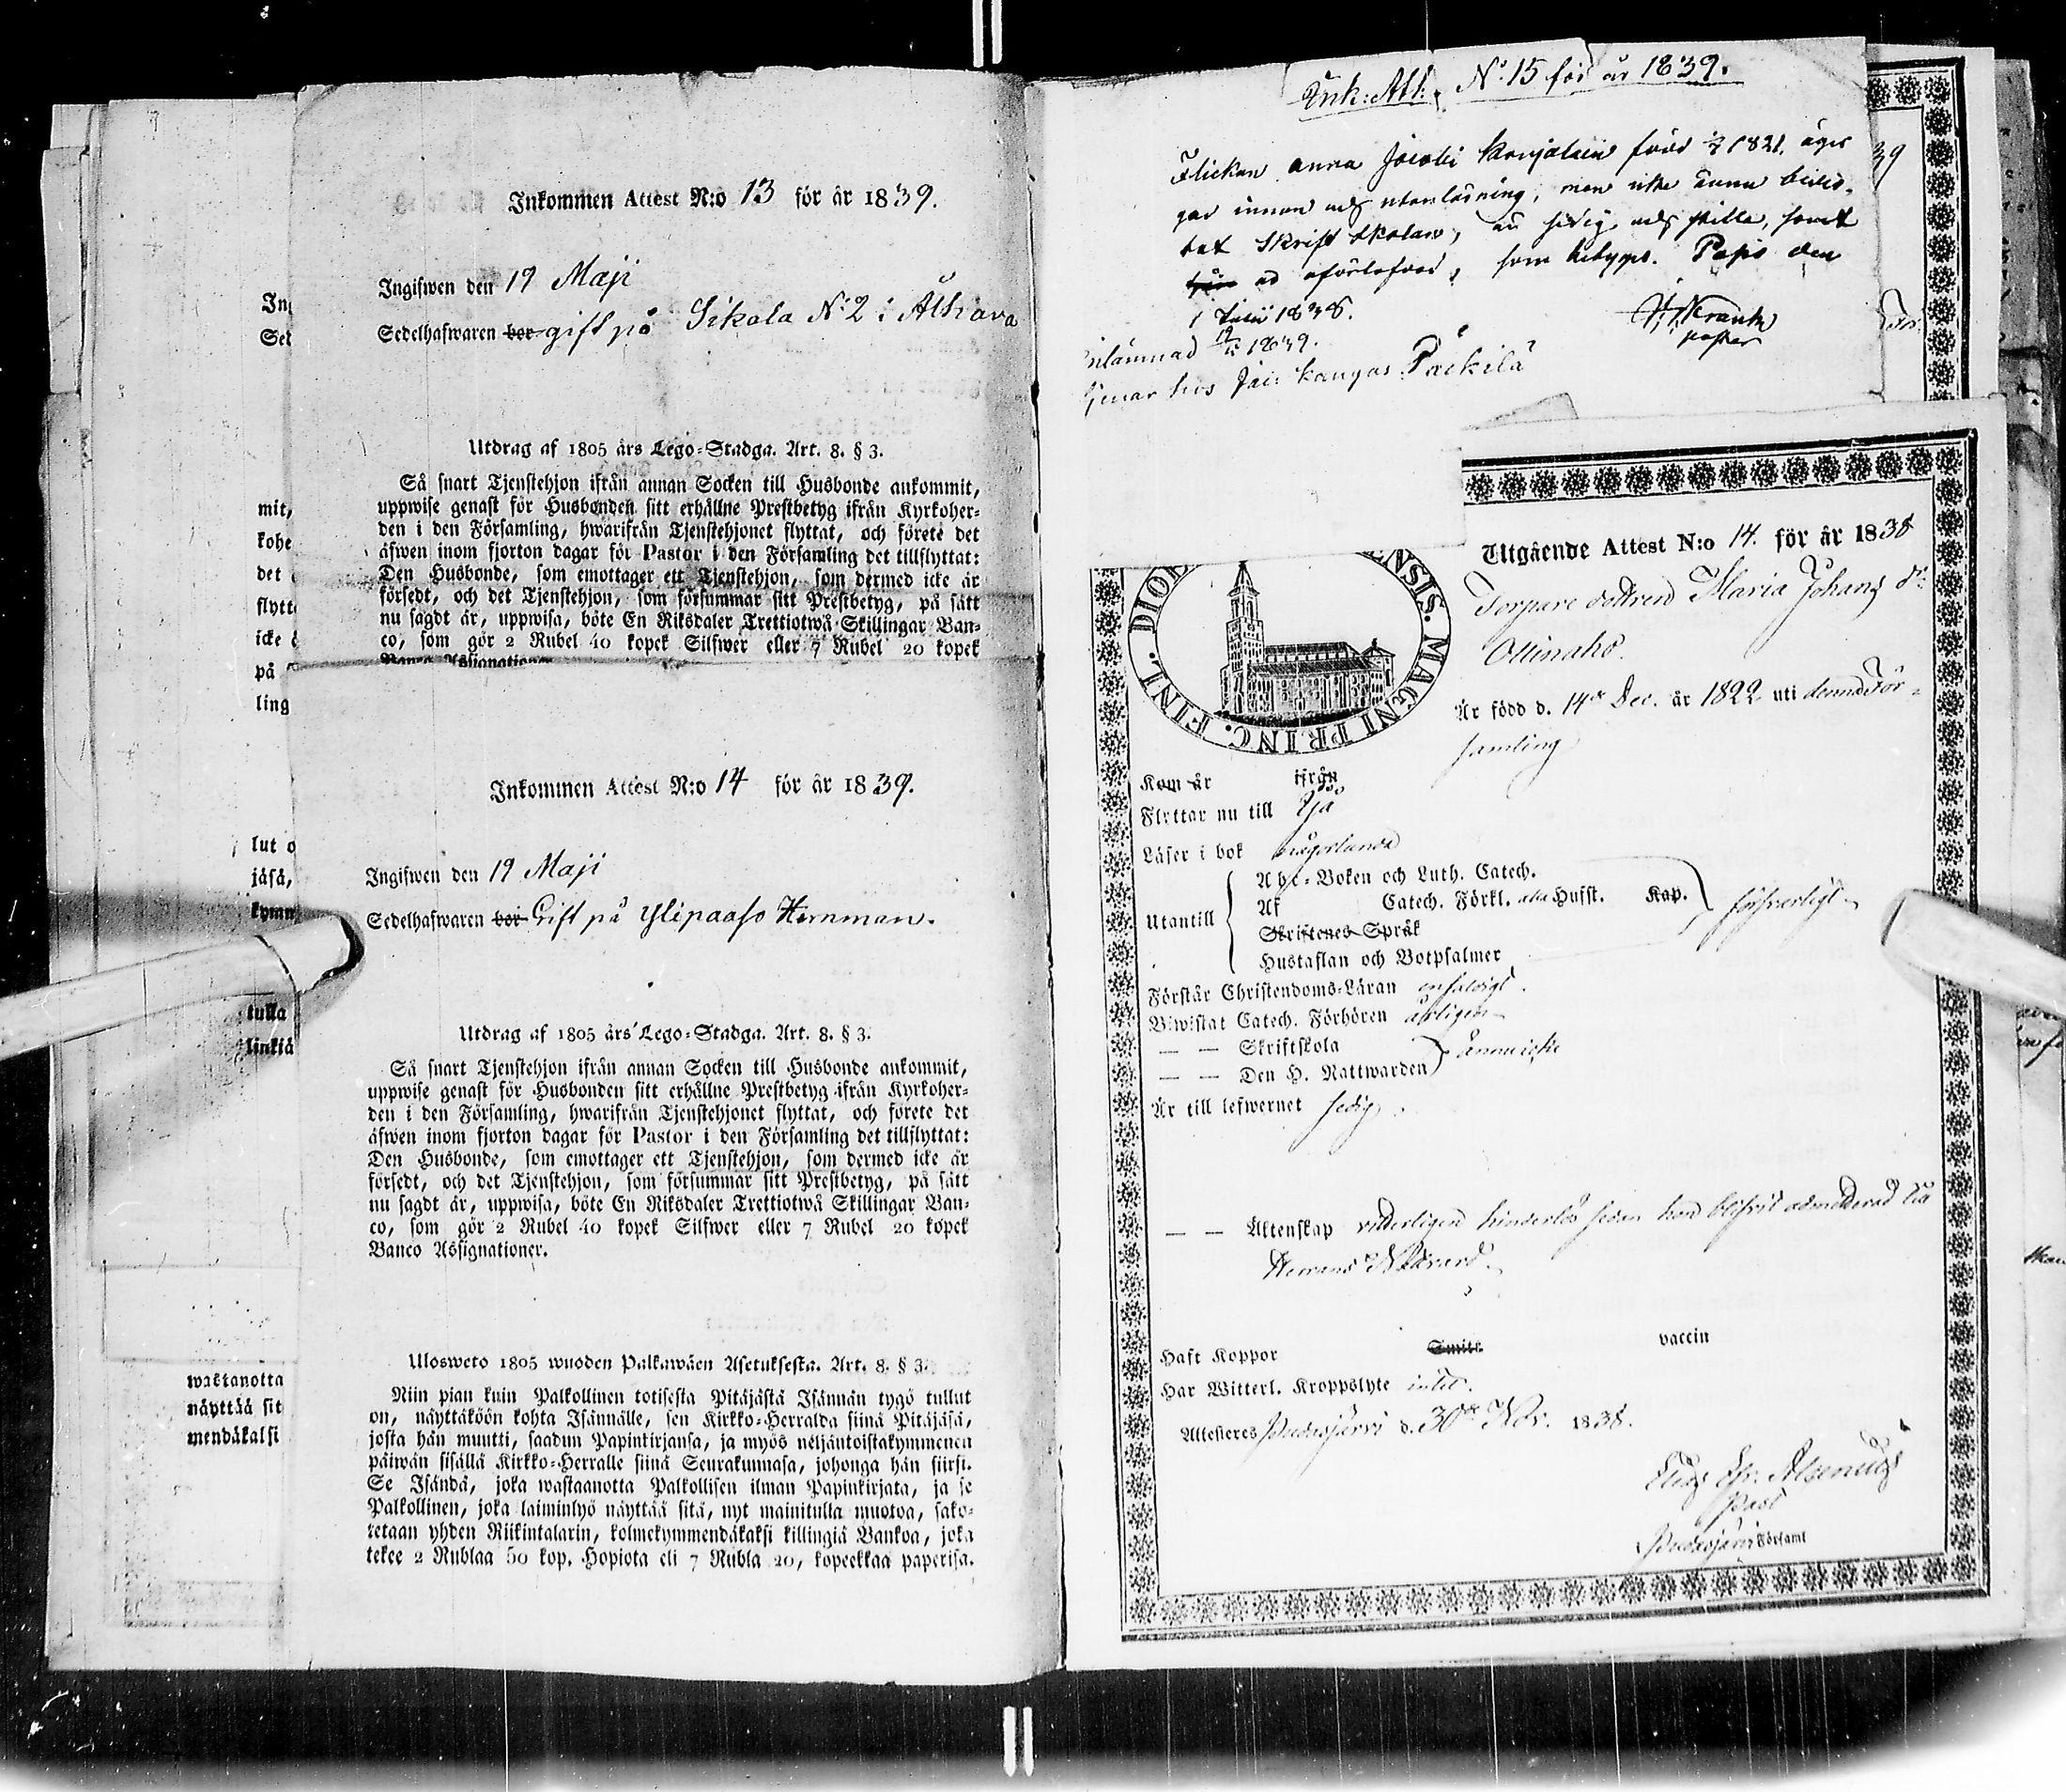 Inkommen Attest N:o 13 för år 1839.
Ingifwen den 19 Maji
Sedelhafwaren bor gift på Sikala N:2 i Alhava
Utdrag af 1805 års Lego-Stadga. Art. 8. § 3.
Så snart Tjenstehjon ifrån annan Socken till Husbonde ankommit,
uppwise genast för Husbonden sitt erhållne Prestbetyg ifrån Kyrkoher-
den i den Församling, hwarifrån Tjenstehjonet flyttat, och förete det
äfwen inom fjorton dagar för Pastor i den Församling det tillflyttat:
Den Husbonde, som emottager ett Tjenstehjon, som dermed icke är
försedt, och det Tjenstehjon, som försummar sitt Prestbetyg, på sätt
nu sagdt är, uppwisa, böte En Riksdaler Trettiotwå Skillingar Ban-
co, som gör 2 Rubel 40 kopek Silfwer eller 7 Rubel 20 kopek
Banco Assignationer
Inkommen Attest N:o 14 för år 1839.
Ingifwen den 19 Maji
Sedelhafwaren bor Gift på Ylipaaso Hernman.
Utdrag af 1805 års Lego-Stadga. Art. 8. § 3.
Så snart Tjenstehjon ifrån annan Socken till Husbonde ankommit,
uppwise genast för Husbonden sitt erhållne Prestbetyg ifrån Kyrkoher-
den i den Församling, hwarifrån Tjenstehjonet flyttat, och förete det
äfwen inom fjorton dagar för Pastor i den Församling det tillflyttat:
Den Husbonde, som emottager ett Tjenstehjon, som dermed icke är
försedt, och det Tjenstehjon, som försummar sitt Prestbetyg, på sätt
nu sagdt är, uppwisa, böte En Riksdaler Trettiotwå Skillingar Ban-
co, som gör 2 Rubel 40 kopek Silfwer eller 7 Rubel 20 kopek
Banco Assignationer.
Ulosweto 1805 wuoden Palkawäen Asetuksesta. Art. 8. § 3.
Niin pian kuin Palkollinen totisesta Pitäjästä Isännän tygö tullut
on, näyttäköön kohta Isännälle, sen Kirkko-Herralda siinä Pitäjäsä,
josta hän muutti, saadun Papinkirjansa, ja myös neljäntoistakymmenen
päiwän sisällä Kirkko-Herralle siinä Seurakunnasa, johonga hän siirsi.
Se Isändä, joka wastaanotta Palkollisen ilman Papinkirjata, ja se
Palkollinen, joka laiminlyö näyttää sitä, nyt mainitulla muotoa, sako-
retaan yhden Riikintalarin, kolmekymmendäkaksi killingiä Bankoa, joka
tekee 2 Rublaa 50 kop. Hopiota eli 7 Rubla 20, kopeekkaa paperisa.
mit,
kohe
det
flytt
icke
på
ling
lut o
jäsä,
kymn
tulla
linkiä
wastanotta
näyttää sit
mendäkalsi
Ink: Att: N:o 15 för år 1839.
Flickan Anna Jacobi Karjalain född 1821, äger
innan och utanläsning, men icke ännu bevis-
tat Skrift skolan, är sedig och stilla, samt
oförlofvad, som betygas. Papis den
1 Junii 1838.
Inlämnad 1839.
Tjenar hos Kangas Päckilä
DIOE ENSIS. MAGNI PRINC. FINL.
Utgående Attest N:o 14. för år 1838
Torpare dottren Maria Johans dr
Ollinaho.
Är född d. 14de Dec. år 1822 uti denna För-
samling
Kom år ifrån
Flyttar nu till Ijå
Läser i bok någorlunda
Utantill
Abc-Boken och Luth. Catech.
Af Catech. Förkl. alla Hufst. Kap.
Skriftenes Språk
Hustaflan och Botpsalmer
försvarligt
Förstår Christendoms-Läran enfaldigt.
Biwistat Catech. Förhören årligen
— — Skriftskola
— — Den H. Nattwarden
ännu icke
Är till lefwernet sedig.
— — Äktenskap vitterligen hinderlös sedan hon blifvit admitterad till
Herrans Nattvard.
Haft Koppor Smitt vaccin
Har Witterl. Kroppslyte intet.
Attesteres Pudasjärvi d. 30de Nov. 1838.
Past
Pudasjärvi Församl